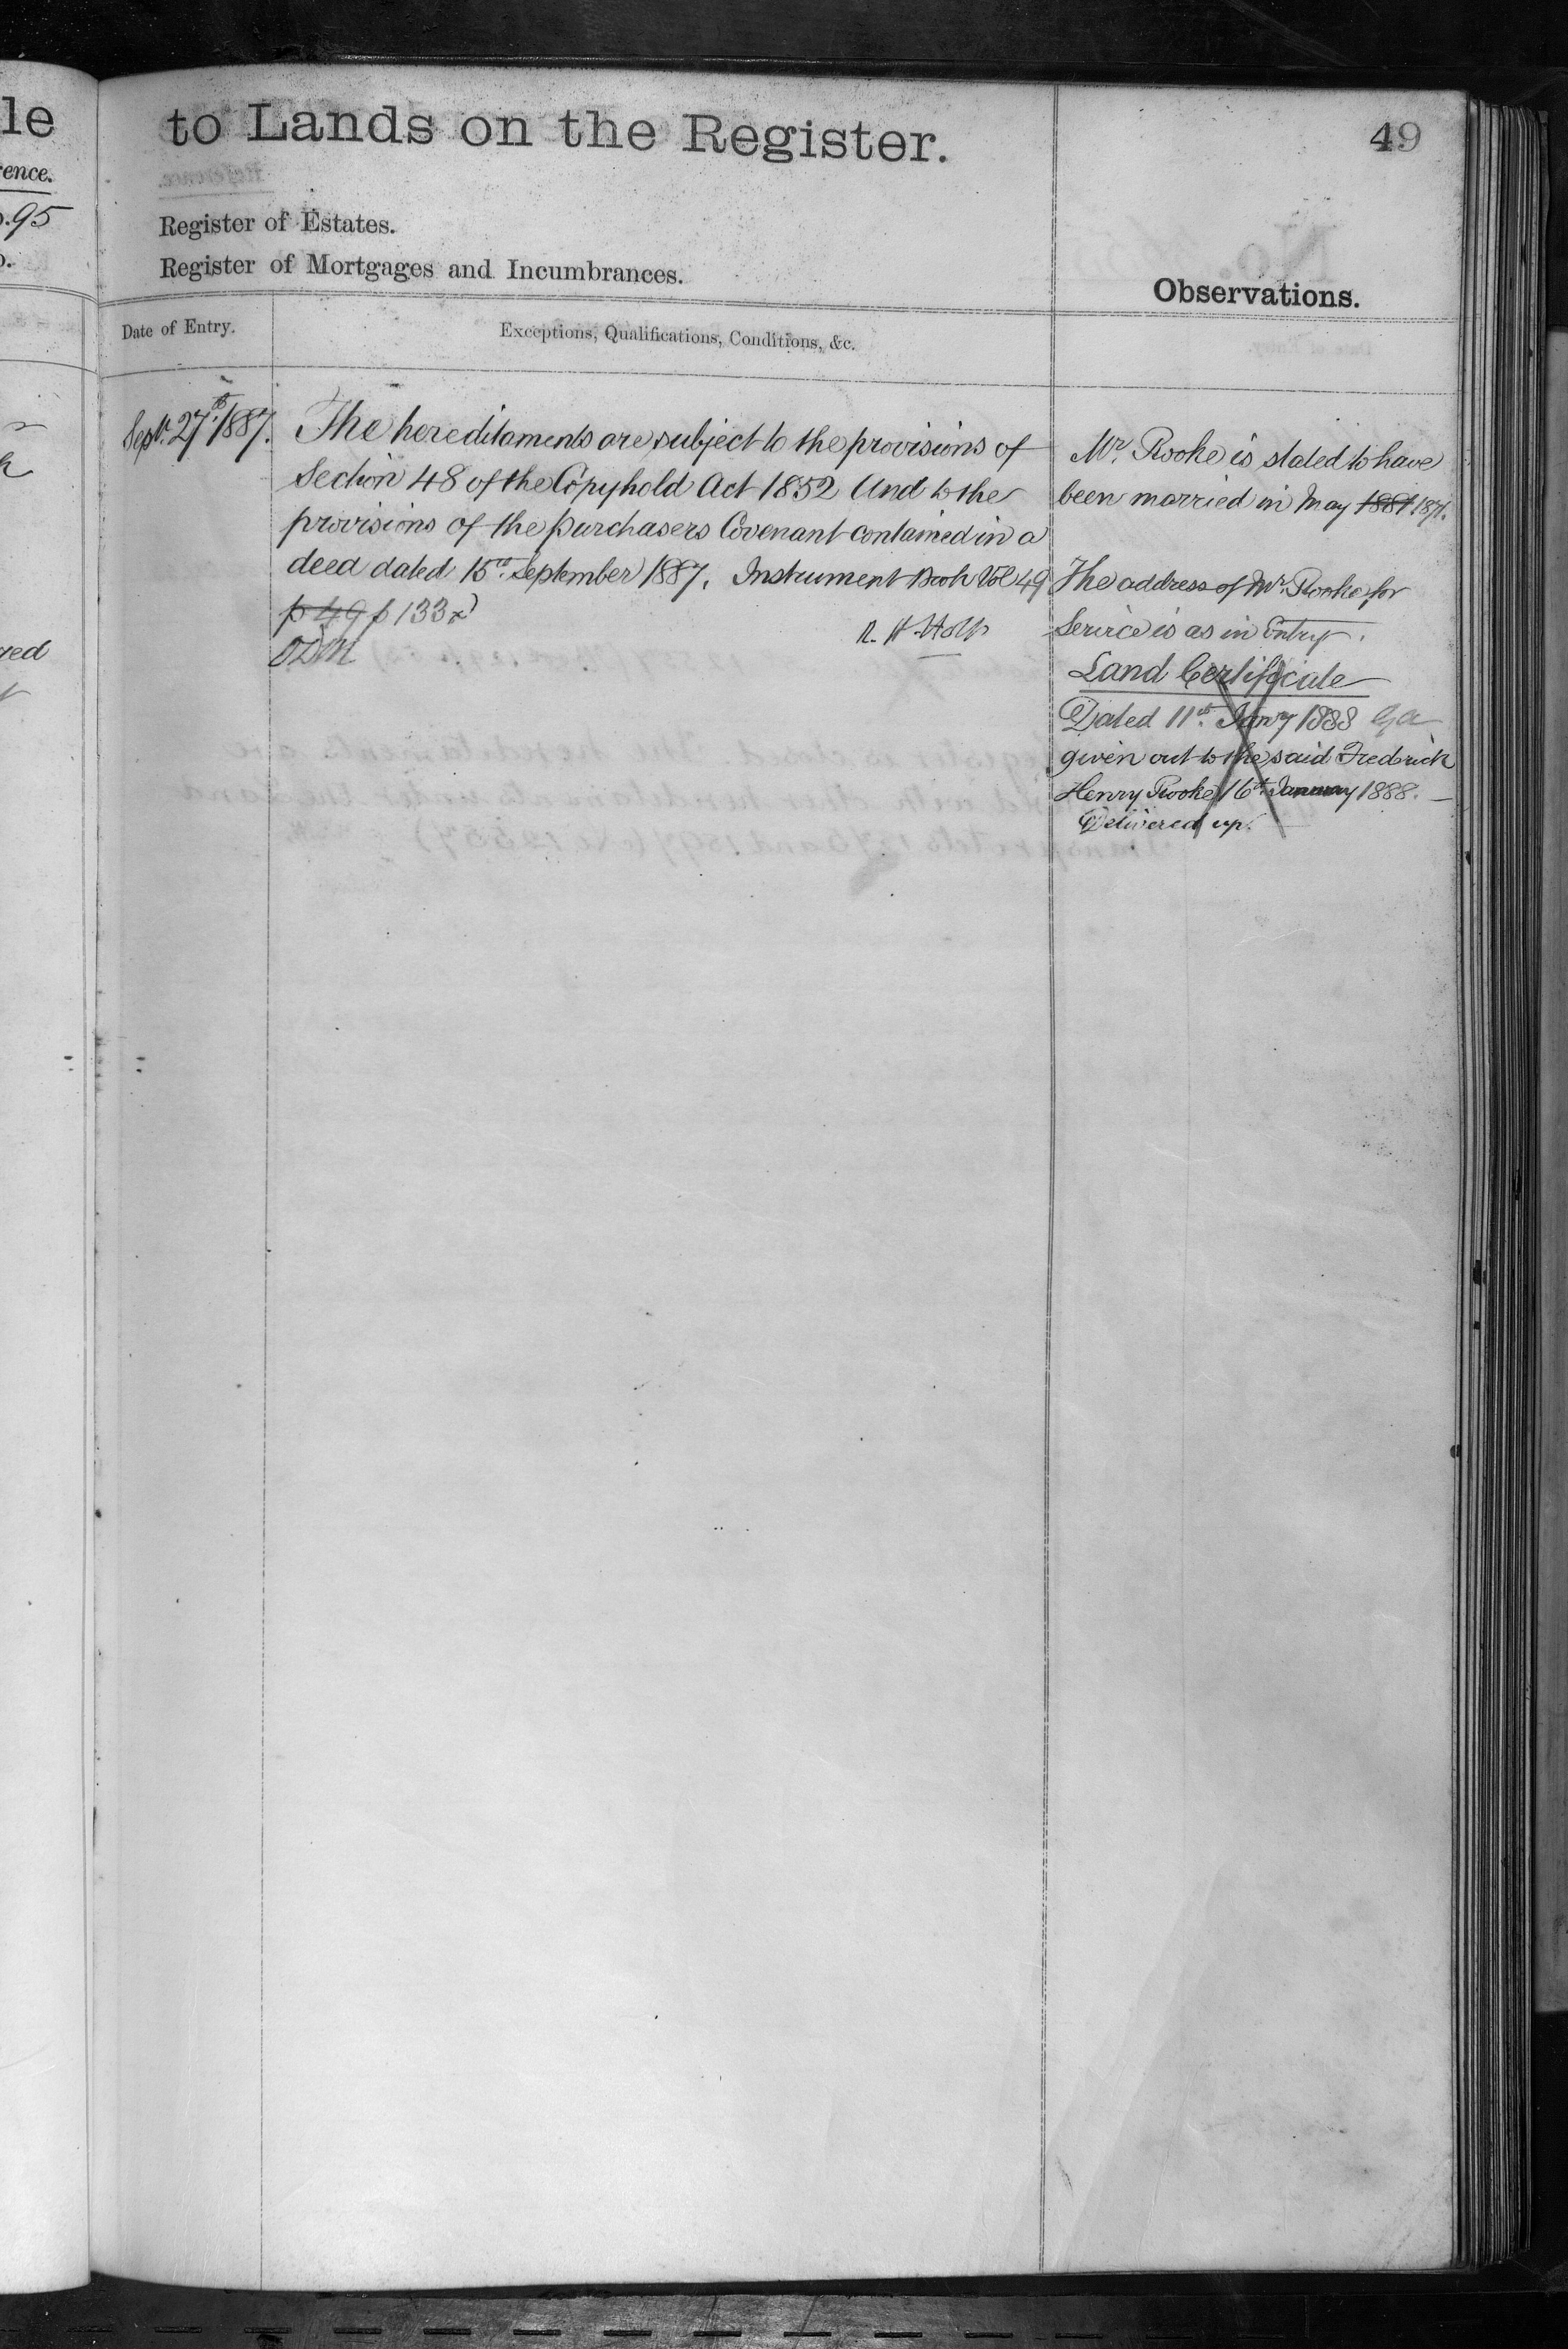 le
to Lands on the Register.
49
ence.
.95
Register of Estates.
Register of Mortgages and Incumbrances.
Observations.
Date of Entry.
Exceptions, Qualifications, Conditions, &c.
Sept. 27th 1887.
The hereditaments are subject to the provisions of
Section 48 of the Copyhold Act 1852 And to the
provisions of the purchasers Covenant contained in a
deed dated 15th September 1887. Instrument Book Vol 49
p 49 p 133
Mr. Rooke is stated to have
been married in May 1881 1871.
The address of Mr. Rooke for
Service is as in Entry.
Land Certificate
Dated 11th Jany 1888
given out to the said Frederick
Henry Rooke 16th January 1888.
Delivered up.